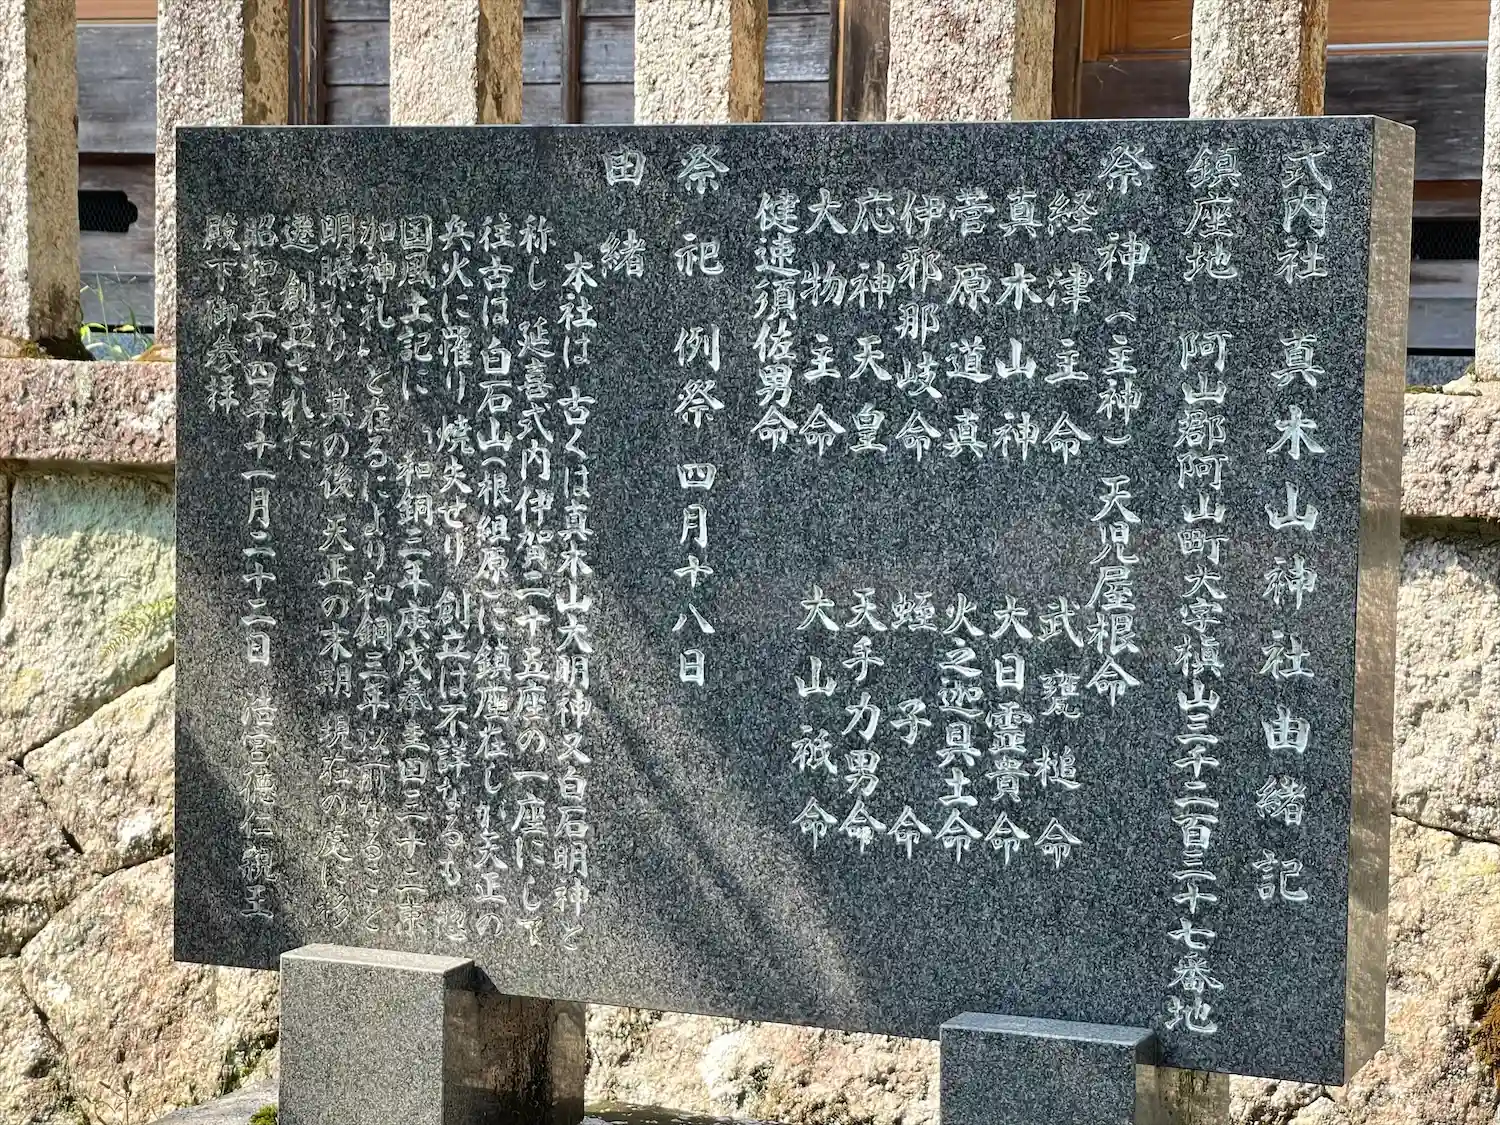 式内社 真木山神社由緒記
鎮座地 阿山郡阿山町大字槙山三千二百三十七番地
祭神(主神) 天児屋根命
経津主命 武甕槌命
真木山神 大日霊貴命
菅原道真 火之迦具土命
伊邪那岐命 蛭子命
応神天皇 天手力男命
大物主命 大山祇命
健速須佐男命
祭祀 例祭 四月十八日
由緒
本社は 古くは真木山大明神又白石明神と
称し 延喜式内伊賀二十五座の一座にして
往古は白石山(根組原)に鎮座在しが天正の
兵火に罹り 焼失せり 創立は不詳なるも 惣
国風土記に 和銅三年庚戌奉圭田三十二束
加神礼 と在るにより和銅三年以前なること
明瞭なり 其の後 天正の末期 現在の処に移
遷 創立された
昭和五十四年十一月二十二日 浩宮徳仁親王
殿下御参拝